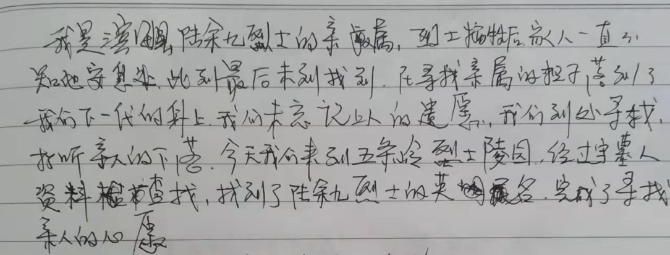 我是滨县陆余九烈士的亲属，烈士牺牲后家人一直不
知他安息处，此到最后未到找到，在寻找亲属的担子落到了
我们下一代的身上，我们未忘记上人的遗愿，我们到处寻找，
打听亲人的下落，今天我们来到五条岭烈士陵园，经过守墓人
资料查找，找到了陆余九烈士的英名，完成了寻找
亲人的心愿